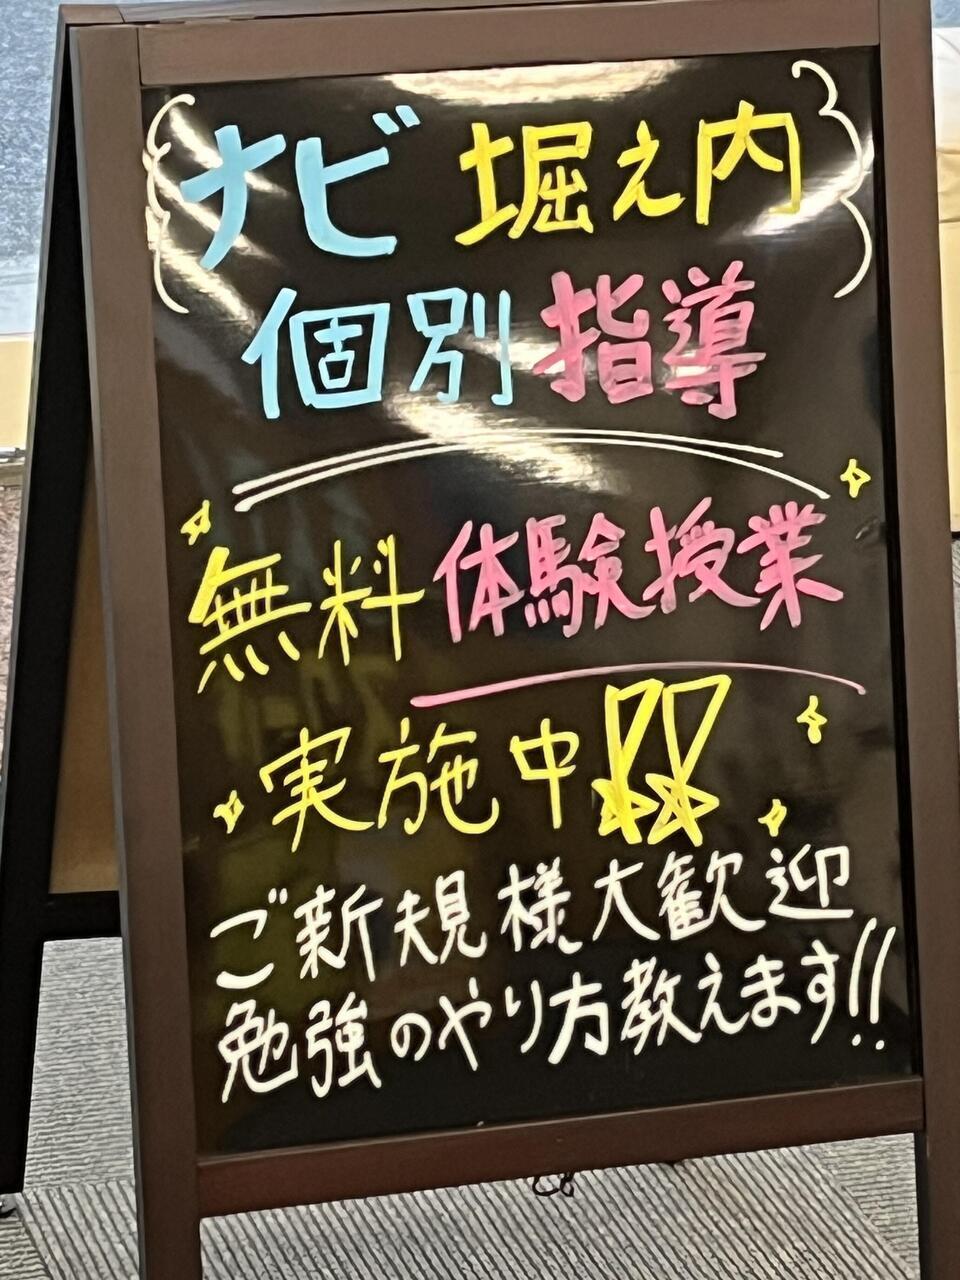 ナビ 堀之内
個別指導
無料体験授業
実施中!!
ご新規様大歓迎
勉強のやり方教えます!!